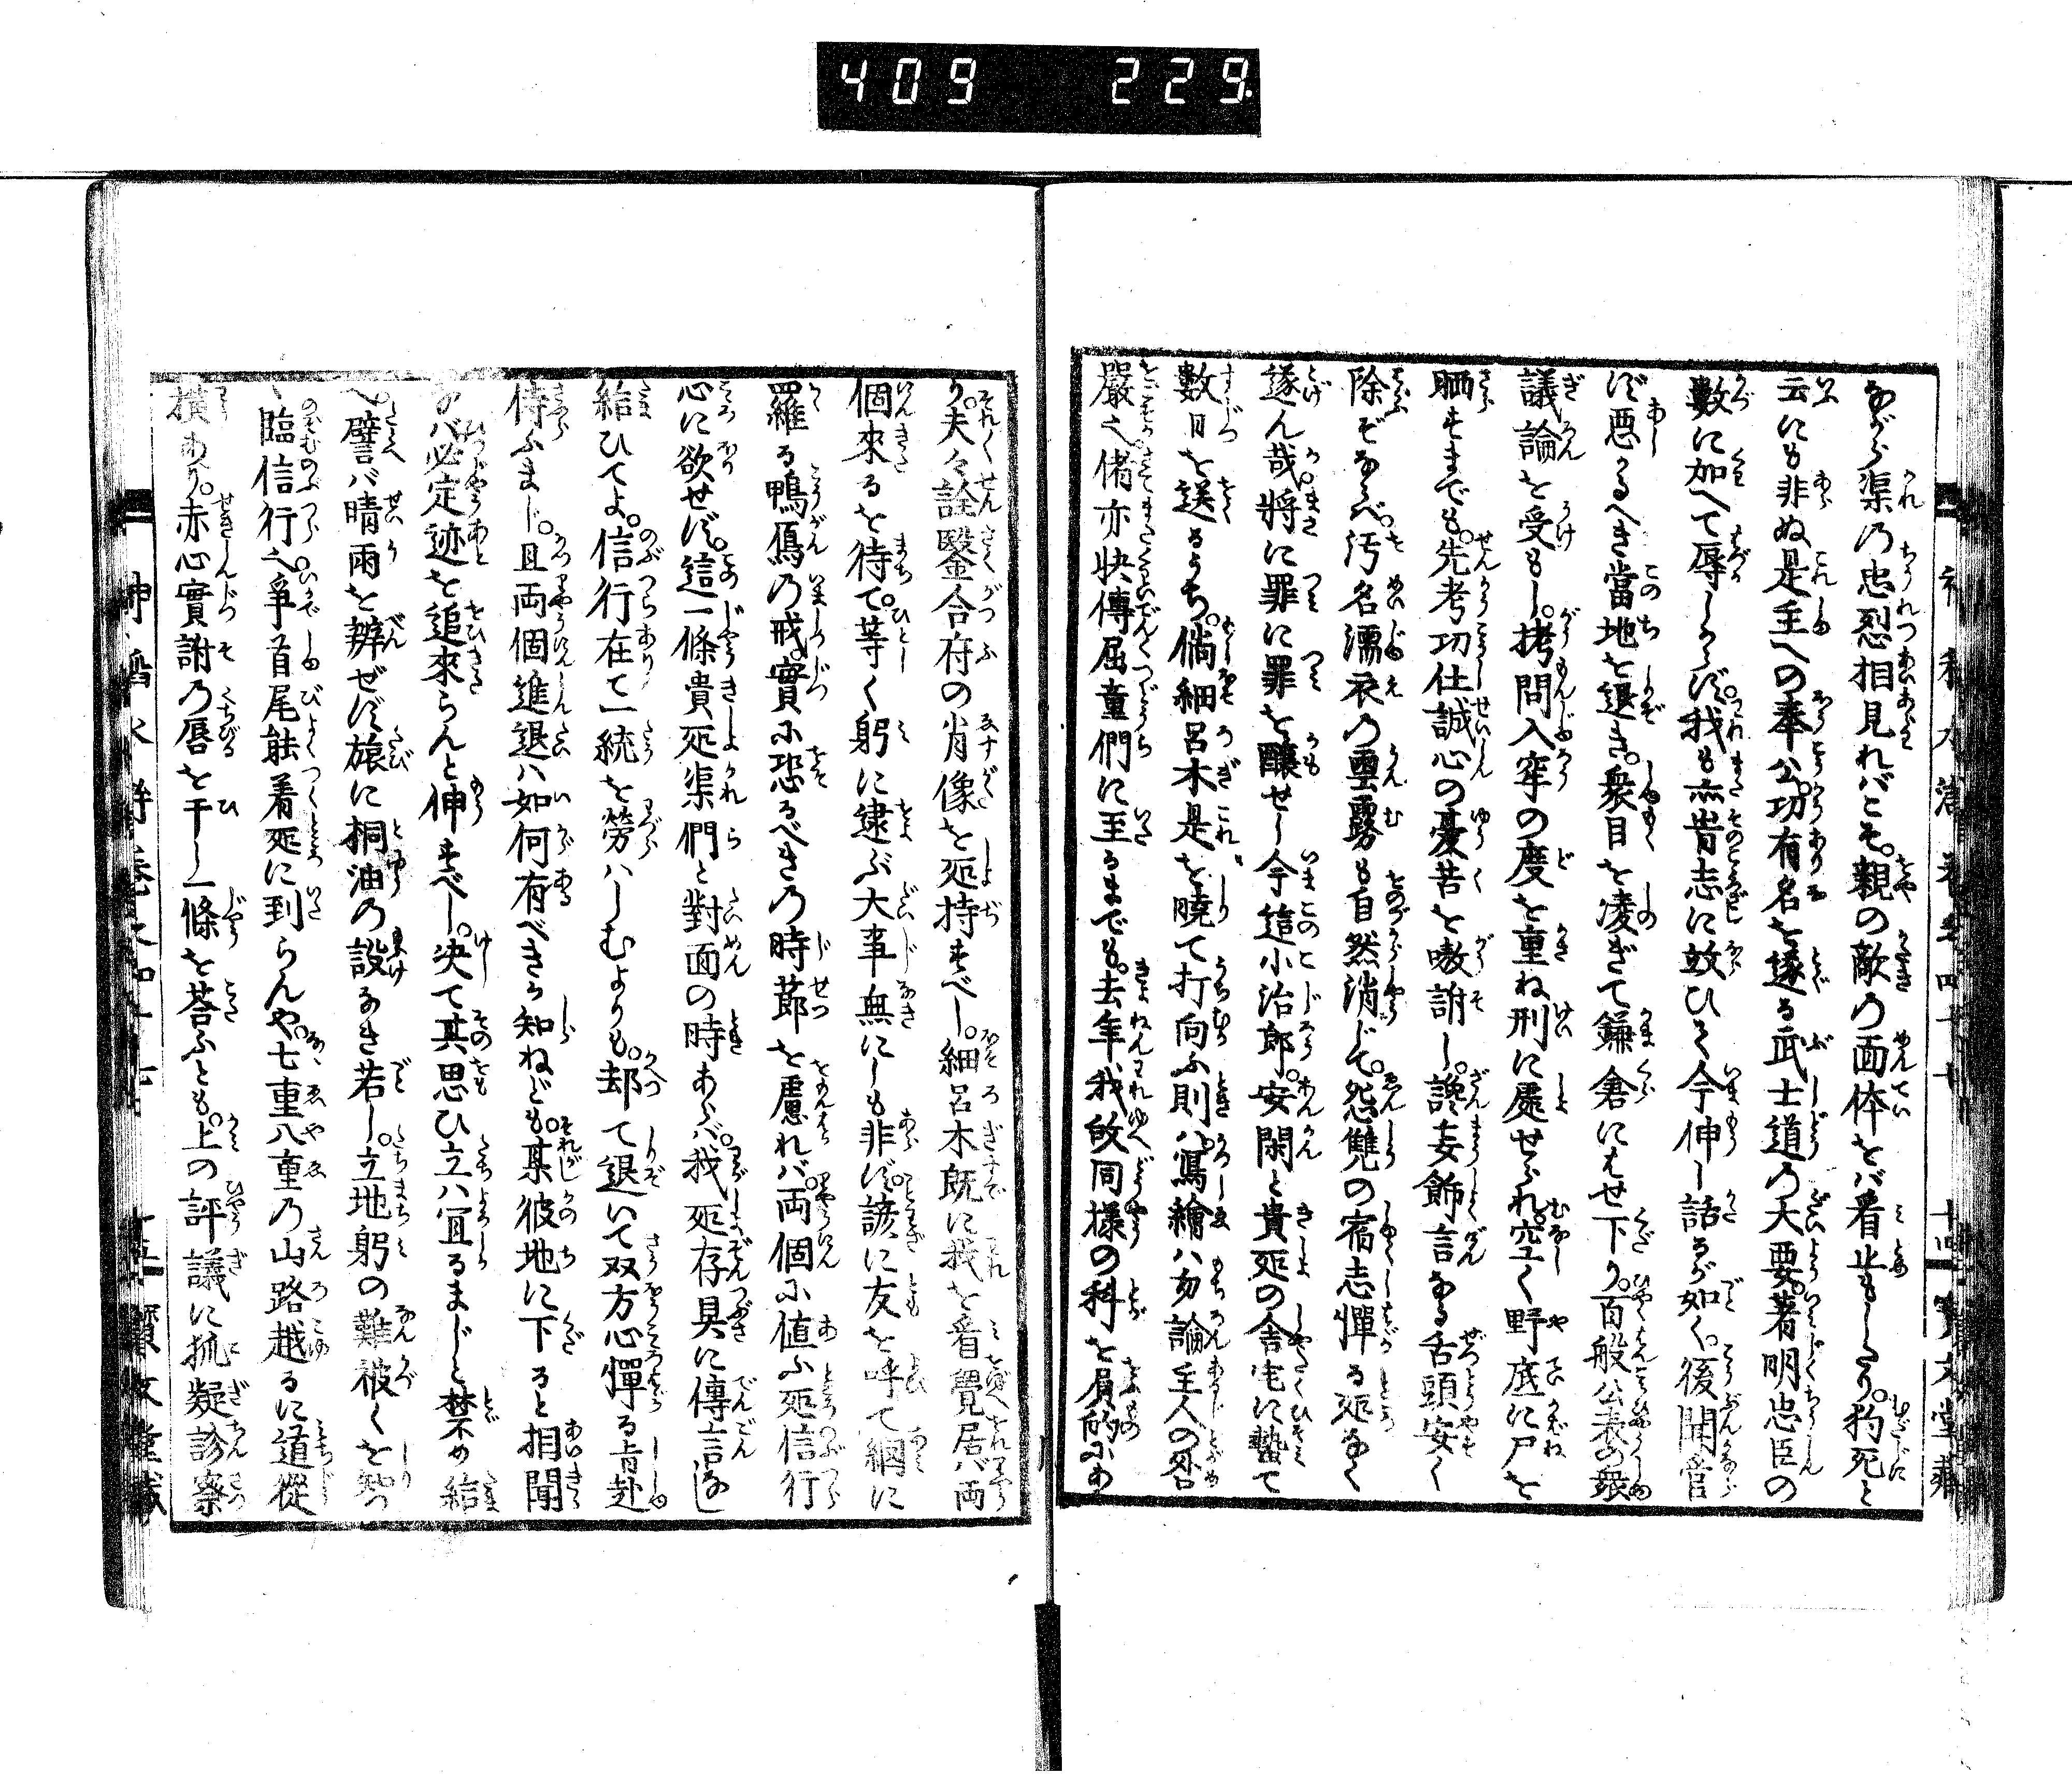 409 229.
ながら渠乃忠烈相見れバこそ。親の敵乃面体をバ看止もしたり。狗死と
云にも非ぬ是主への奉公。功有名を遂る武士道乃大要。著明忠臣の
數に加へて辱しからず。我も亦
志に效ひて今伸し話るが如く。後聞官
ず悪かるべき當地を退き。衆目を凌ぎて鎌倉にはせ下り。百般公表の衆
議論を受もし。拷問入牢の度を重ね刑に處せられ。空く野底に尸を
晒すまでも。先考功仕誠心の憂苦を嗷訴し。讒妄飾言なる舌頭安く
除ぞなすべ。汚名濡衣乃雲霧も自然消じて。怨讐の宿志憚る所なく
遂ん哉。將に罪に罪を釀せし今這小治郎。安閑と貴所の舍宅に蟄て
數日を送るうち。倘細呂木是を曉て打向ふ則ハ。寫繪ハ勿論主人の咎
嚴之偖亦怏傳屈童們に至るまでも。去年我故同樣の科を屓的にあ
り。夫々詮鑿合府の肖像を所持すべし。細呂木既に我を看覺居バ両
個來るを待て。等く躬に逮ぶ大事無にしも非ず。諺に友を呼て網に
羅る鴨鴈乃戒。實に恐るべきの時節を慮れバ。両個に値ふ所信行
心に欲せず。這一條貴所渠們と對面の時あらバ。我所存具に傳言なし
給ひてよ。信行在て一統を勞ハしむよりも。却て退いて双方心憚る
侍ふまじ。且両個進退ハ如何有べきか知ねども。某彼地に下ると相聞
バ必定迹を追來らんと伸すべし。决て其思ひ立ハ冝るまじと禁め給
へ。譬バ晴雨を辨ぜず旅に桐油乃設なき若し。立地躬の難被くを知つ
ゝ臨信行之。爭首尾能着所に到らんや。七重八重乃山路越るに道從
横あり。赤心實訴乃唇を干し一條を荅ふとも。上の評議に狐疑診察